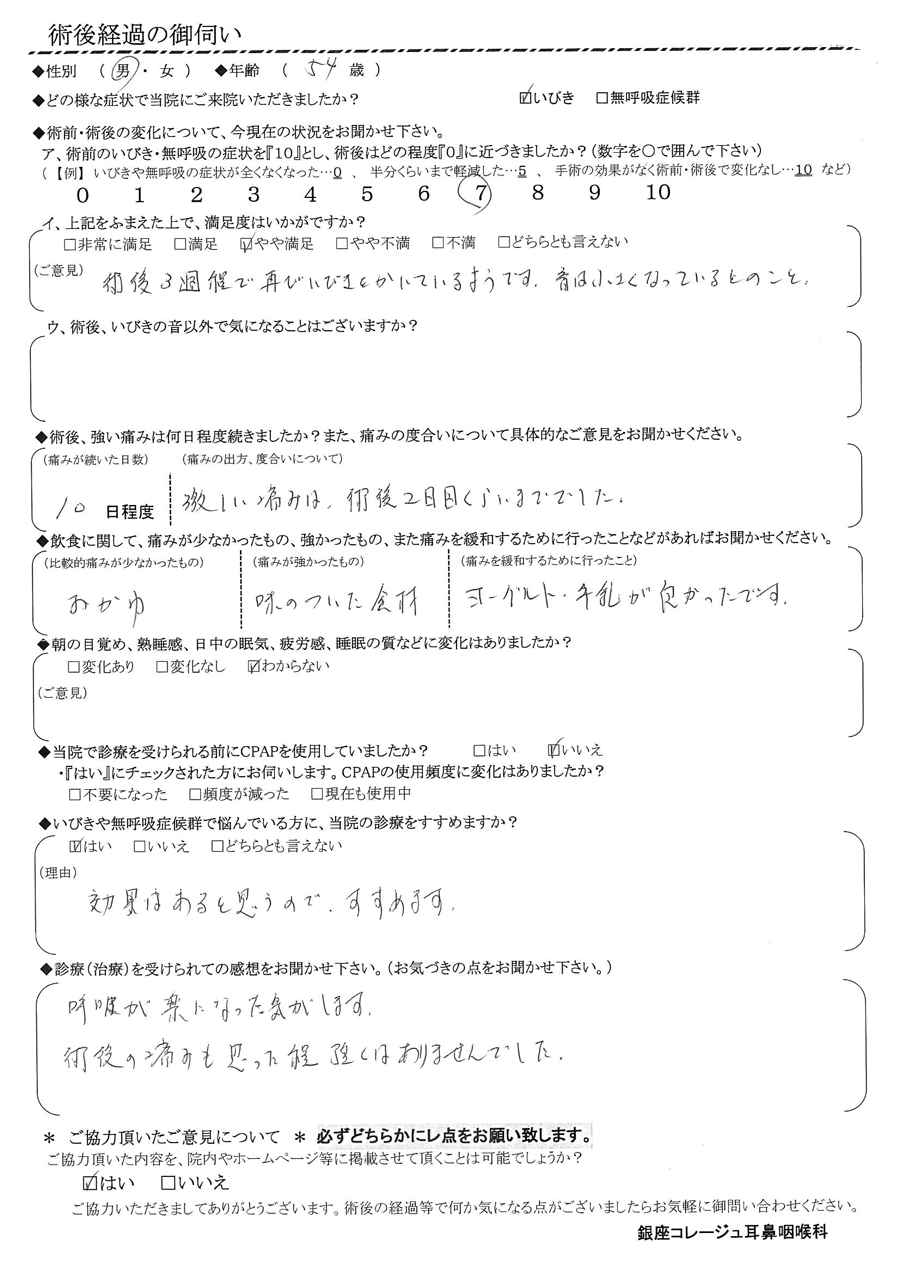 術後経過の御伺い
◆性別 （ 男 ・ 女 ） ◆年齢 （ 54 歳 ）
◆どの様な症状で当院にご来院いただきましたか？ ☑いびき □無呼吸症候群
◆術前・術後の変化について、今現在の状況をお聞かせ下さい。
ア、術前のいびき・無呼吸の症状を『10』とし、術後はどの程度『0』に近づきましたか？（数字を○で囲んで下さい）
（【例】 いびきや無呼吸の症状が全くなくなった…0 、 半分くらいまで軽減した…5 、 手術の効果がなく術前・術後で変化なし…10 など）
0 1 2 3 4 5 6 7 8 9 10
イ、上記をふまえた上で、満足度はいかがですか？
□非常に満足 □満足 ☑やや満足 □やや不満 □不満 □どちらとも言えない
（ご意見） 術後3週程で再びいびきをかいているようです。音は小さくなっているとのこと。
ウ、術後、いびきの音以外で気になることはございますか？
◆術後、強い痛みは何日程度続きましたか？また、痛みの度合いについて具体的なご意見をお聞かせください。
（痛みが続いた日数） （痛みの出方、度合いについて）
10 日程度 激しい痛みは、術後2日目くらいまででした。
◆飲食に関して、痛みが少なかったもの、強かったもの、また痛みを緩和するために行ったことなどがあればお聞かせください。
（比較的痛みが少なかったもの） （痛みが強かったもの） （痛みを緩和するために行ったこと）
おかゆ 味のついた食材 ヨーグルト・牛乳が良かったです。
◆朝の目覚め、熟睡感、日中の眠気、疲労感、睡眠の質などに変化はありましたか？
□変化あり □変化なし ☑わからない
（ご意見）
◆当院で診療を受けられる前にCPAPを使用していましたか？ □はい ☑いいえ
・『はい』にチェックされた方にお伺いします。CPAPの使用頻度に変化はありましたか？
□不要になった □頻度が減った □現在も使用中
◆いびきや無呼吸症候群で悩んでいる方に、当院の診療をすすめますか？
☑はい □いいえ □どちらとも言えない
（理由）
効果はあると思うので、すすめます。
◆診療（治療）を受けられての感想をお聞かせ下さい。（お気づきの点をお聞かせ下さい。）
呼吸が楽になった気がします。
術後の痛みも思った程強くはありませんでした。
＊ ご協力頂いたご意見について ＊ 必ずどちらかにレ点をお願い致します。
ご協力頂いた内容を、院内やホームページ等に掲載させて頂くことは可能でしょうか？
☑はい □いいえ
ご協力いただきましてありがとうございます。術後の経過等で何か気になる点がございましたらお気軽に御問い合わせください。
銀座コレージュ耳鼻咽喉科